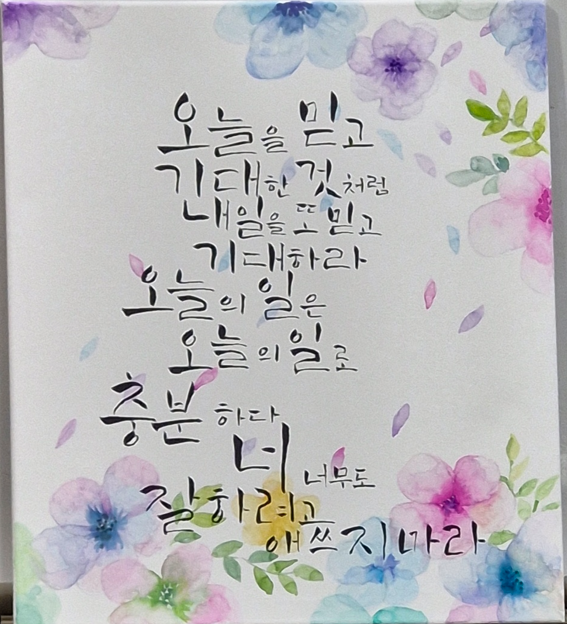 오늘을 믿고
긴대한 것처럼
내일을 또 믿고
기대하라
오늘의 일은
오늘의 일로
충분하다
너 너무도
잘하려고
애쓰지마라